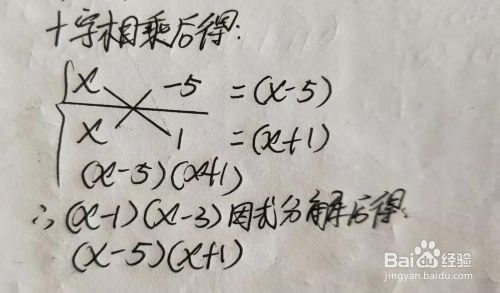 十字相乘后得:
x -5 =(x-5)
x 1 =(x+1)
(x-5)(x+1)
∴(x-1)(x-3)因式分解后得:
(x-5)(x+1)
Baidu经验
jingyan.baidu.com